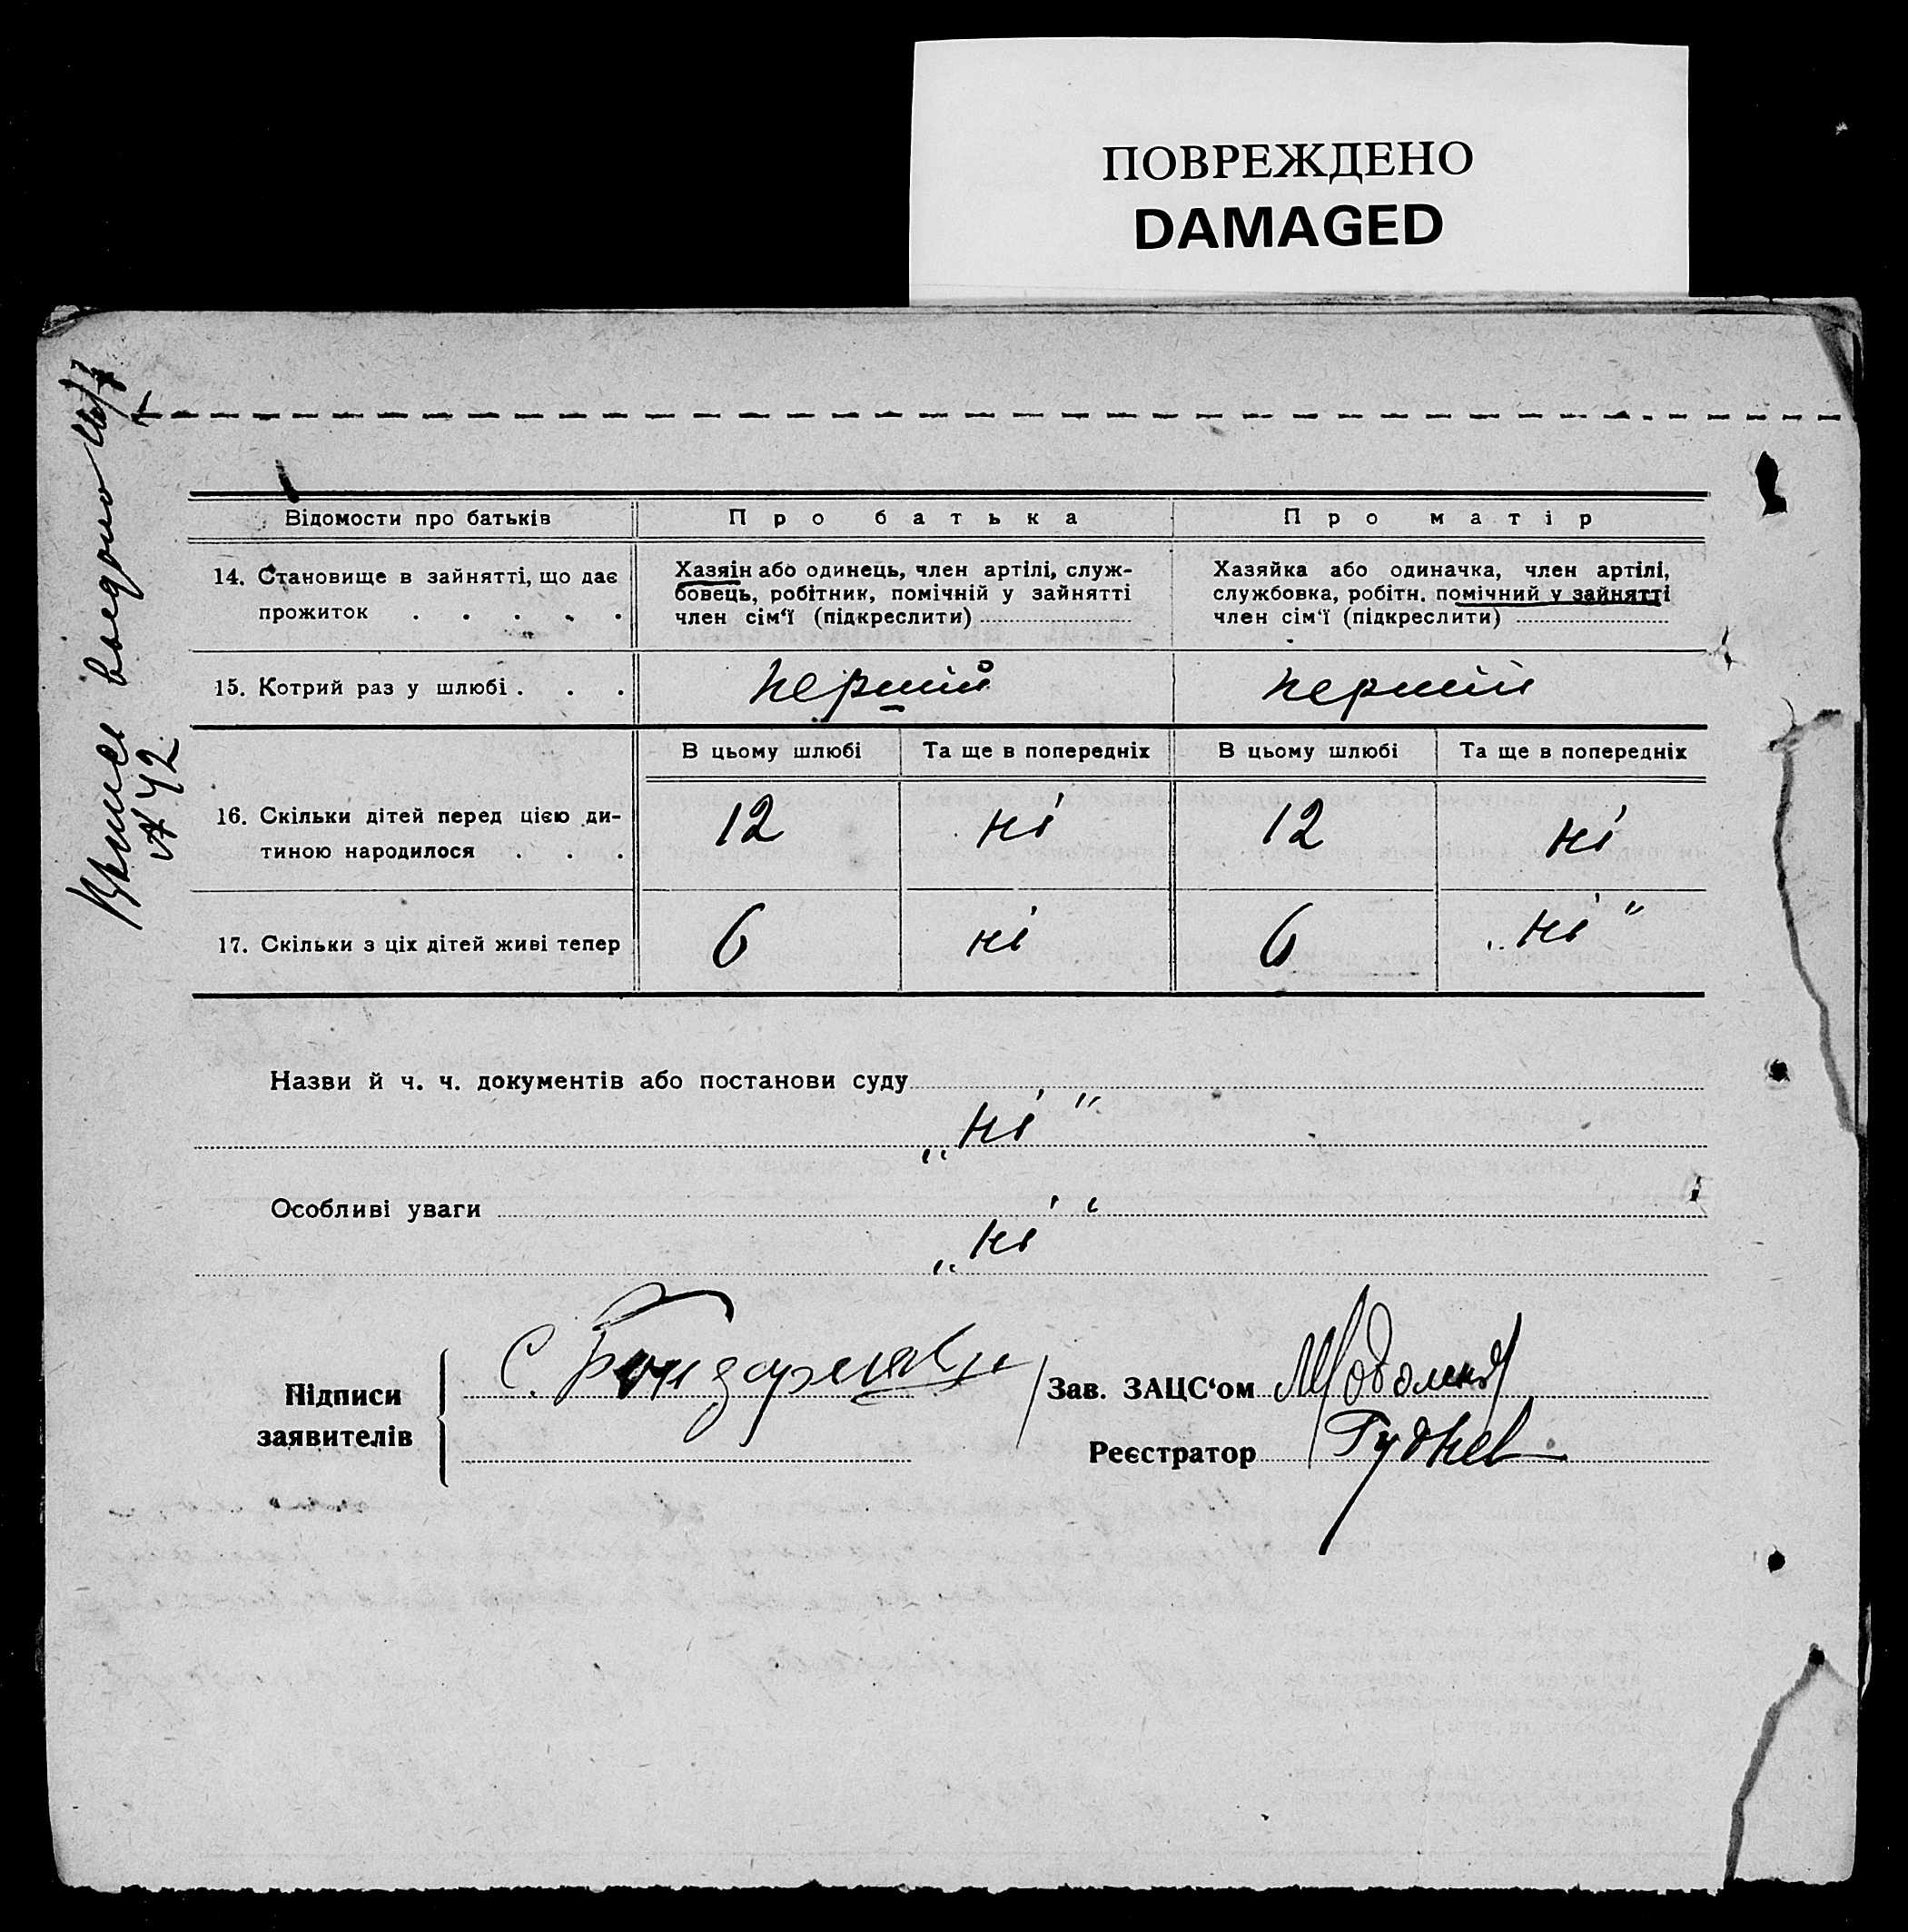 ПОВРЕЖДЕНО
DAMAGED
Відомости про батьків
Про батька
Про матір
14. Становище в зайнятті, що дає
прожиток . . . . .
Хазяін або одинець, член артілі, служ-
бовець, робітник, помічній у зайнятті
член сім'ї (підкреслити)
Хазяйка або одиначка, член артілі,
службовка, робітн. помічний у зайнятті
член сім'ї (підкреслити)
15. Котрий раз у шлюбі . . .
перший
перший
В цьому шлюбі
Та ще в попередніх
В цьому шлюбі
Та ще в попередніх
16. Скільки дітей перед цією ди-
тиною народилося . . .
12
ні
12
ні
17. Скільки з ціх дітей живі тепер
6
ні
6
„ні"
Назви й ч. ч. документів або постанови суду
„ні"
Особливі уваги
„ні"
Підписи
заявителів
С.
Зав. ЗАЦС'ом
Реєстратор
№ 42